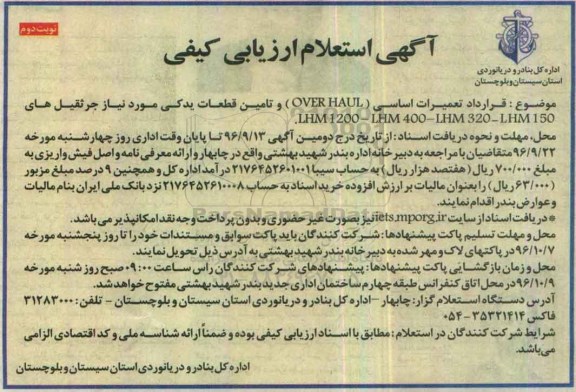 نوبت دوم
آگهی استعلام ارزیابی کیفی
اداره کل بنادر و دریانوردی
استان سیستان و بلوچستان
موضوع : قرارداد تعمیرات اساسی ( OVER HAUL ) و تامین قطعات یدکی مورد نیاز جرثقیل های
LHM 1200 - LHM 400- LHM 320- LHM 150.
محل، مهلت و نحوه دریافت اسناد: از تاریخ درج دومین آگهی ۹۶/۹/۱۳ تا پایان وقت اداری روز چهارشنبه مورخه
۹۶/۹/۲۲ متقاضیان با مراجعه به دبیرخانه اداره بندر شهید بهشتی واقع در چابهار و ارائه معرفی نامه و اصل فیش واریزی به
مبلغ ۷۰۰/۰۰۰ ریال (هفتصد هزار ریال) به حساب سیبا ۲۱۷۶۴۵۲۶۰۱۰۰۱ درآمد اداره کل و همچنین ۹ درصد مبلغ مزبور
(۶۳/۰۰۰ ریال) را بعنوان مالیات بر ارزش افزوده خرید اسناد به حساب ۲۱۷۶۴۵۲۶۱۰۰۸ نزد بانک ملی ایران بنام مالیات
و عوارض بندر اقدام نمایند.
*دریافت اسناد از سایت iets.mporg.ir نیز بصورت غیر حضوری و بدون پرداخت وجه نقد امکانپذیر می باشد.
محل و مهلت تسلیم پاکت پیشنهادها: شرکت کنندگان باید پاکت سوابق و مستندات خود را تا روز پنجشنبه مورخه
۹۶/۱۰/۷ در پاکتهای لاک و مهر شده به دبیرخانه بندر شهید بهشتی به آدرس ذیل تحویل نمایند.
محل و زمان بازگشایی پاکت پیشنهادها: پیشنهادهای شرکت کنندگان رأس ساعت ۰۹:۰۰ صبح روز شنبه مورخه
۹۶/۱۰/۹ در محل اتاق کنفرانس طبقه چهارم ساختمان اداری جدید بندر شهید بهشتی مفتوح خواهد شد.
آدرس دستگاه استعلام گزار: چابهار – اداره کل بنادر و دریانوردی استان سیستان و بلوچستان - تلفن: ۳۱۲۸۳۰۰۰
فاکس ۳۵۳۲۱۴۱۴ - ۰۵۴
شرایط شرکت کنندگان در استعلام: مطابق با اسناد ارزیابی کیفی بوده و ضمناً ارائه شناسه ملی و کد اقتصادی الزامی
می باشد.
اداره کل بنادر و دریانوردی استان سیستان و بلوچستان